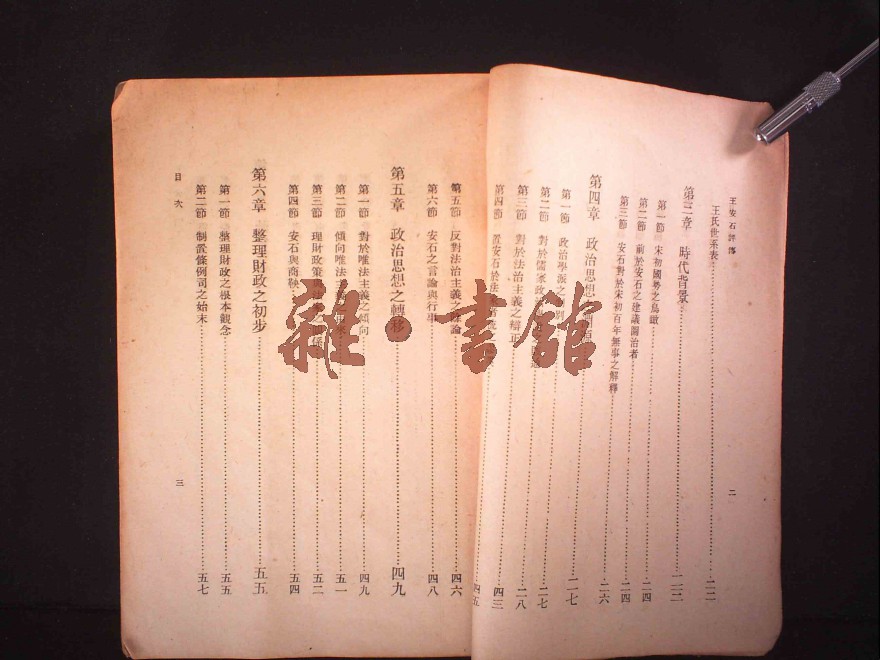 王安石評傳
王氏世系表 二二
第三章 時代背景 二二
第一節 宋初國勢之鳥瞰 二四
第二節 前於安石之建議圖治者 二四
第三節 安石對於宋初百年無事之解釋 二六
第四章 政治思想 二七
第一節 政治學派 二七
第二節 對於儒家政 二八
第三節 對於法治主義之辯正 四三
第四節 置安石於法 四五
二
第五節 反對法治主義之 論 四六
第六節 安石之言論與行事 四八
第五章 政治思想之轉移 四九
第一節 對於唯法主義之傾向 四九
第二節 傾向唯法 五一
第三節 理財政策 五二
第四節 安石與商鞅 五四
第六章 整理財政之初步 五五
第一節 整理財政之根本觀念 五五
第二節 制置條例司之始末 五七
目次
三
雜·書館